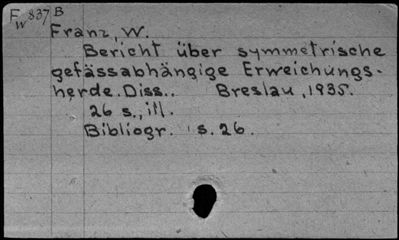 F 837 B
W
Franz, W.
Bericht über symmetrische
gefässabhängige Erweichungs-
herde. Diss.. Breslau, 1935.
26 s., ill.
Bibliogr. s. 26.